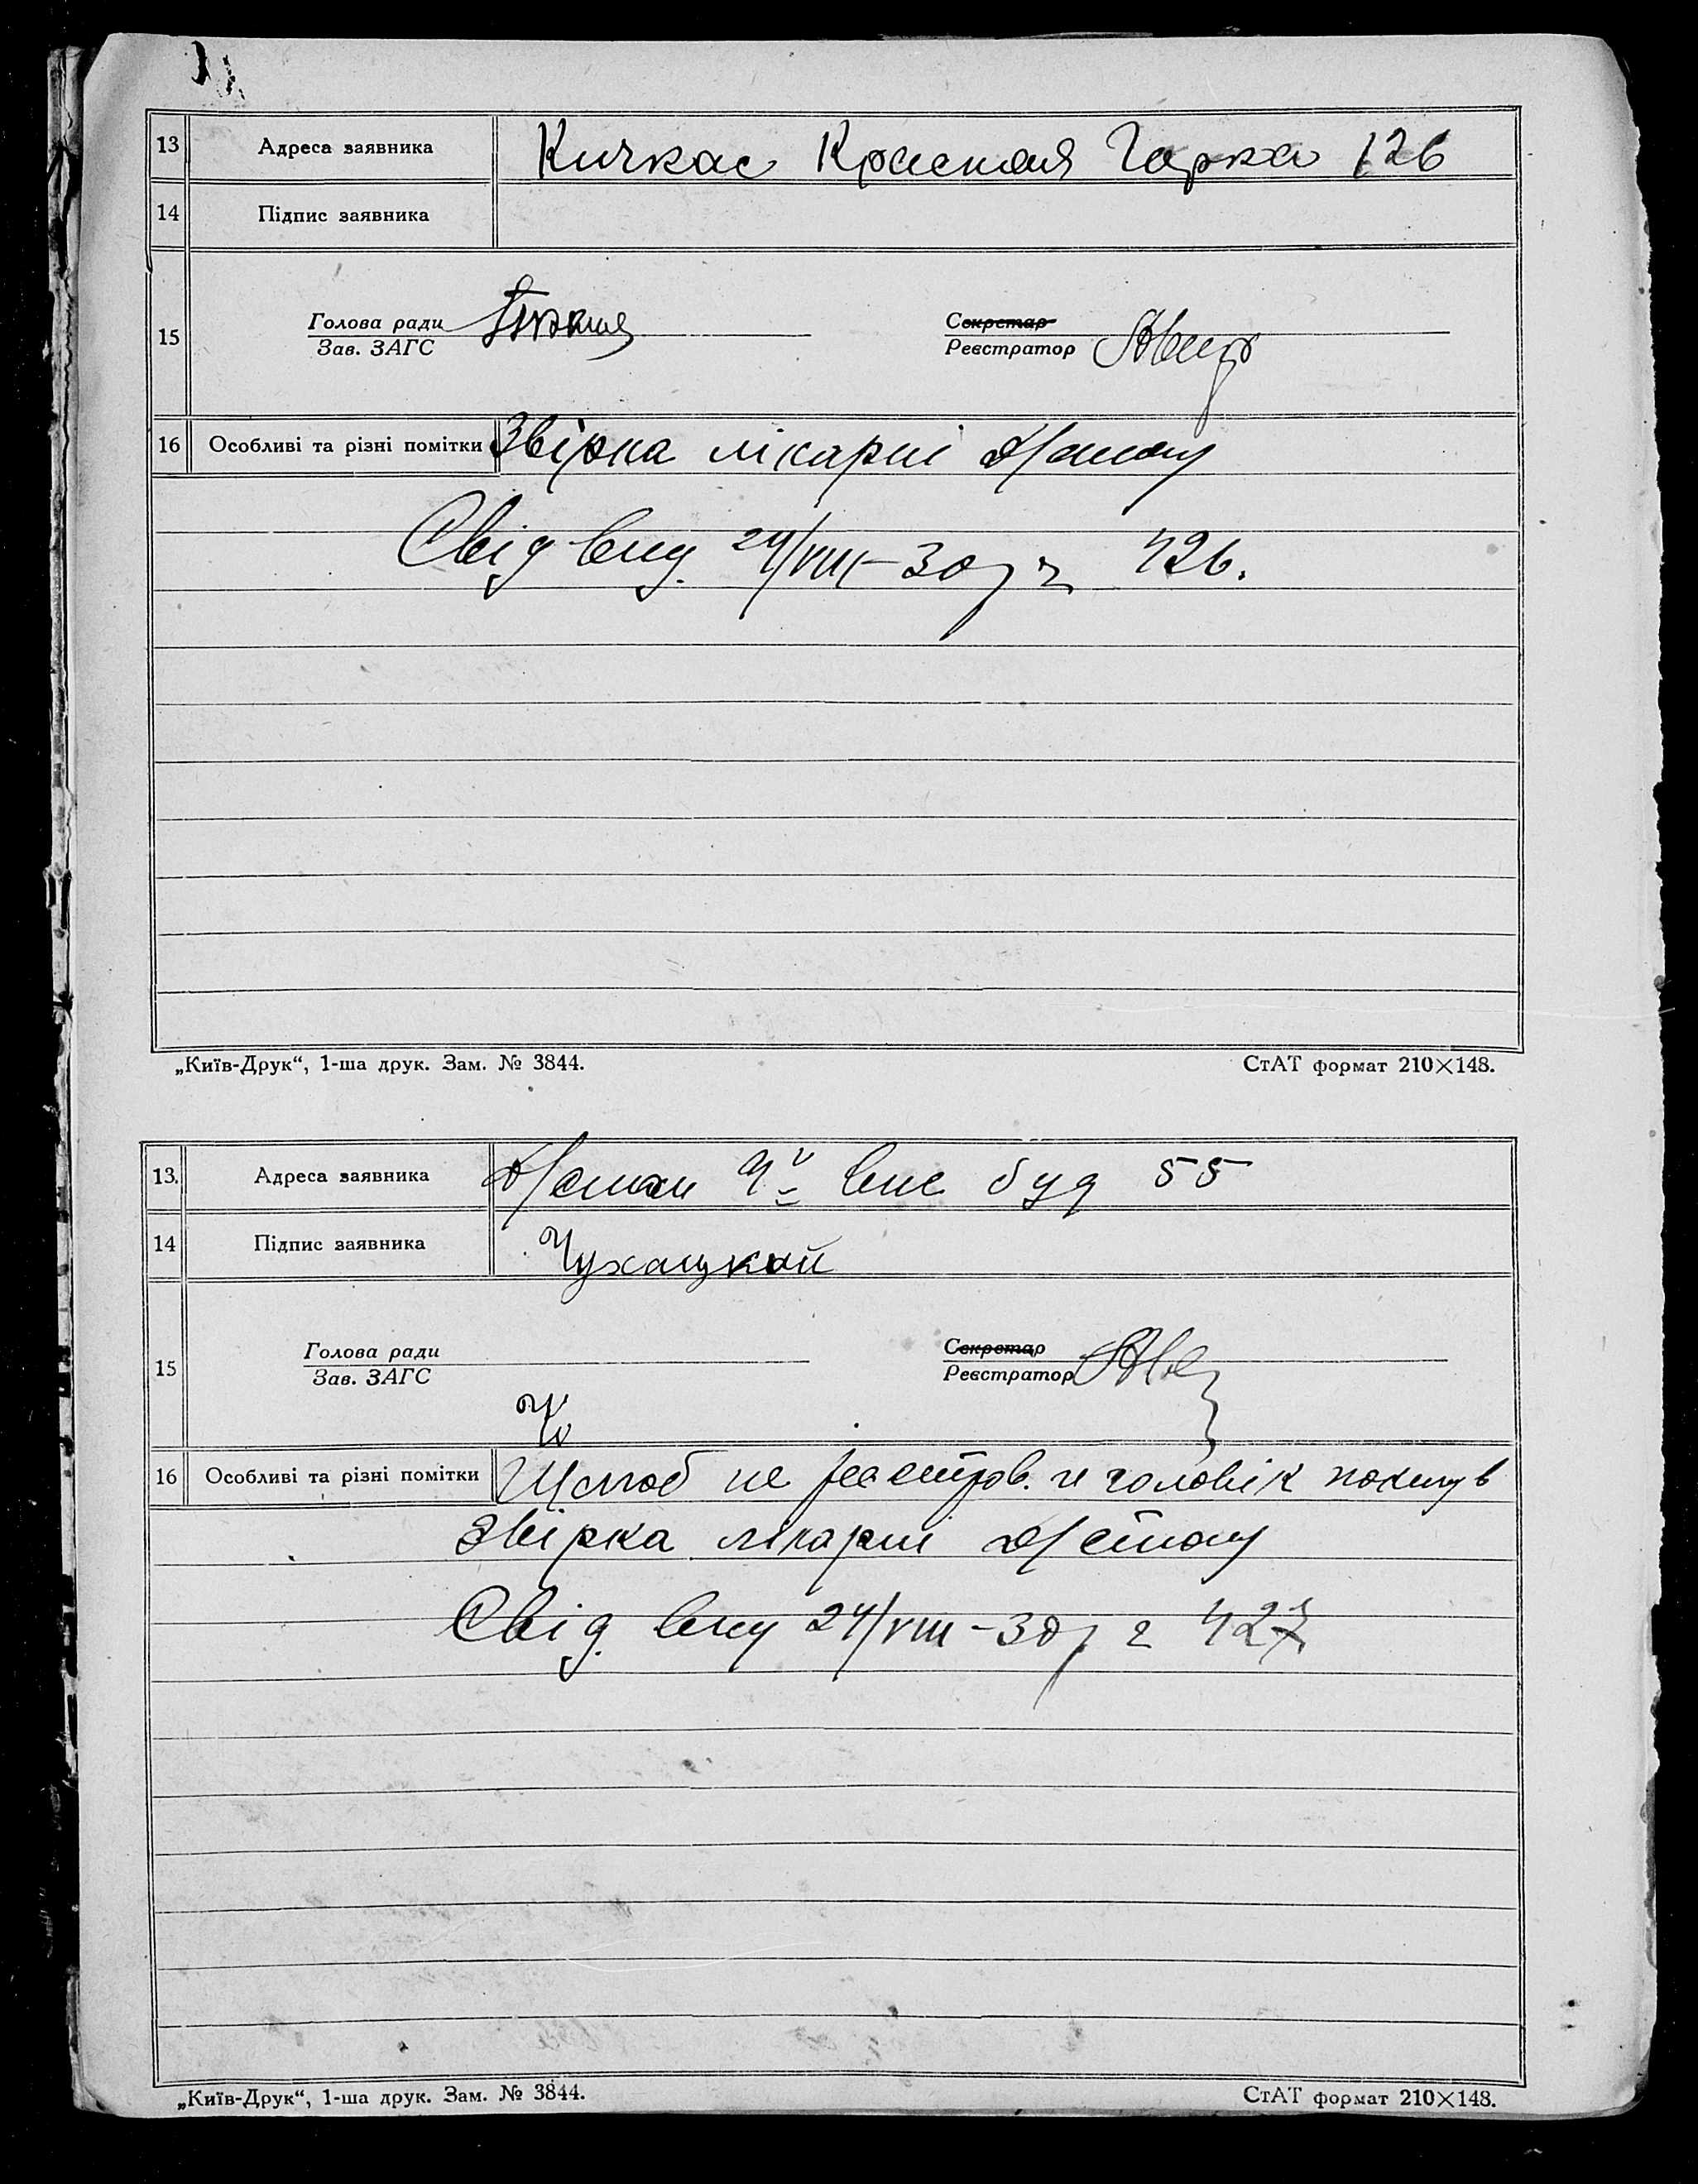 13 Адреса заявника Кичкас Красная Горка 126
14 Підпис заявника
Голова ради Секретар
15
Зав. ЗАГС Реєстратор
16 Особливі та різні помітки Звірка лікарні Д/стану
Свід вид. 24/VIII-30 р ч 426.
„Київ-Друк“, 1-ша друк. Зам. № 3844. СтАТ формат 210×148.
13. Адреса заявника вис буд 55
14 Підпис заявника Чухацкий
Голова ради Секретар
15
Зав. ЗАГС Реєстратор
16 Особливі та різні помітки Шлюб не реєстров. чоловік покинув
Звірка лікарні Д/стану
Свід. вид 24/VIII-30 р ч 427
„Київ-Друк“, 1-ша друк. Зам. № 3844. СтАТ формат 210×148.